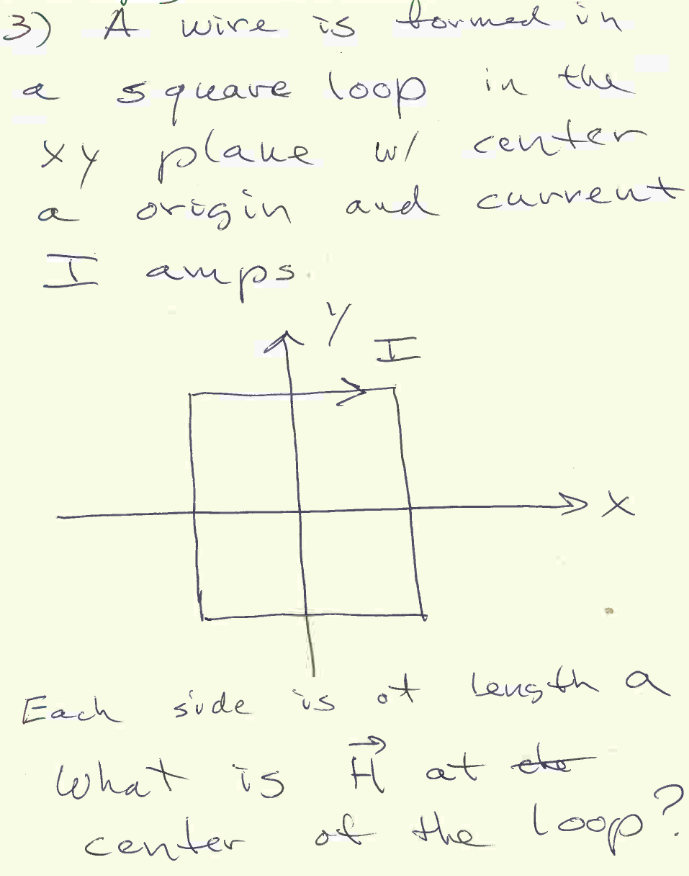 3) A wire is formed in
a square loop in the
xy plane w/ center
a origin and current
I amps.
y
I
x
Each side is of length a
What is H⃗ at the
center of the loop?